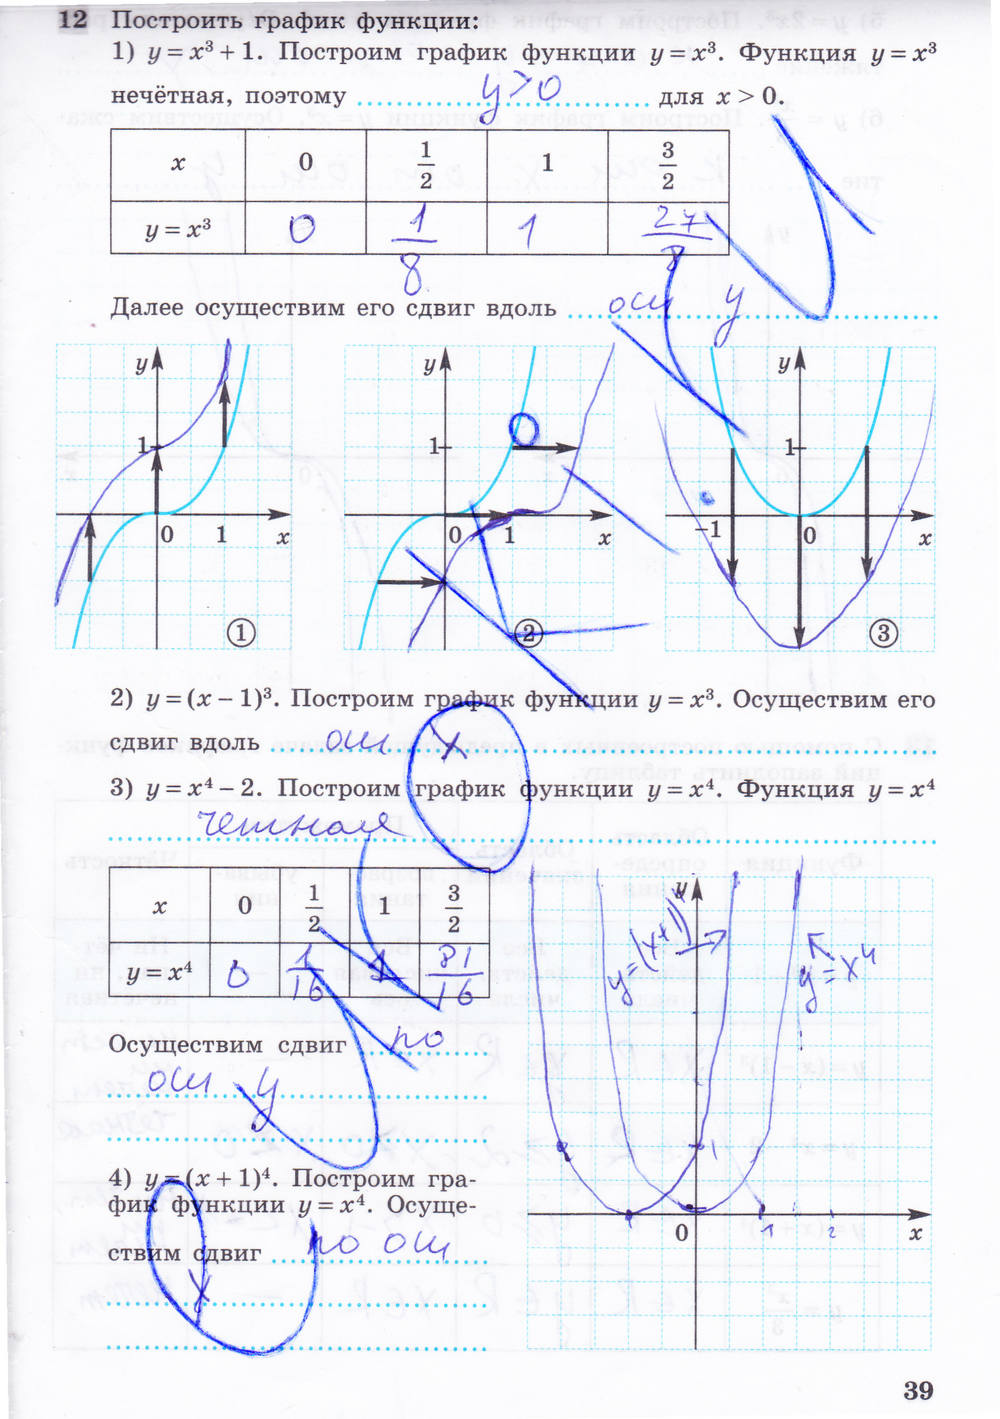 12 Построить график функции:
1) y = x³ + 1. Построим график функции y = x³. Функция y = x³
нечётная, поэтому y > 0 для x > 0.
x 0 1/2 1 3/2
y = x³ 0 1/8 1 27/8
Далее осуществим его сдвиг вдоль оси y
y 1 0 1 x ①
y 1 0 1 x ②
y 1 -1 0 x ③
2) y = (x − 1)³. Построим график функции y = x³. Осуществим его
сдвиг вдоль оси x
3) y = x⁴ − 2. Построим график функции y = x⁴. Функция y = x⁴
четная
x 0 1/2 1 3/2
y = x⁴ 0 1/16 1 81/16
Осуществим сдвиг по
оси y
4) y = (x + 1)⁴. Построим гра-
фик функции y = x⁴. Осуще-
ствим сдвиг по оси
x
y
y=(x+1)⁴
y=x⁴
1
0 1 2 x
39